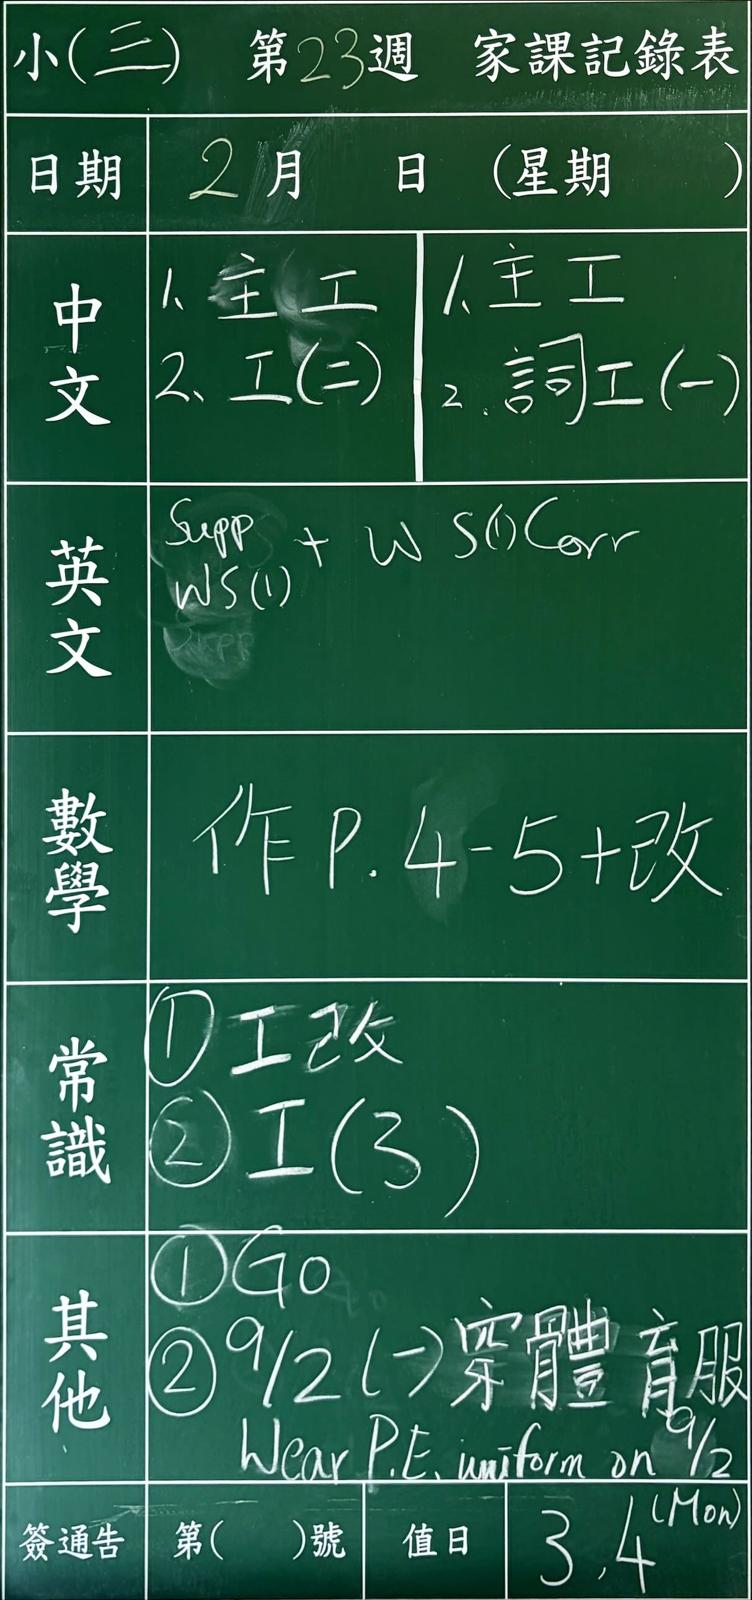 小(三) 第23週 家課記錄表
日期 2月 日 (星期 )
中文
1、主工
2、工(二)
1、主工
2.詞工(一)
英文
Supp WS(1) + WS(1) Corr
數學
作P.4-5+改
常識
① 工改
② 工(3)
其他
① GO
② 9/2(一)穿體育服
Wear P.E. uniform on 9/2
(Mon)
簽通告 第( )號 值日 3.4